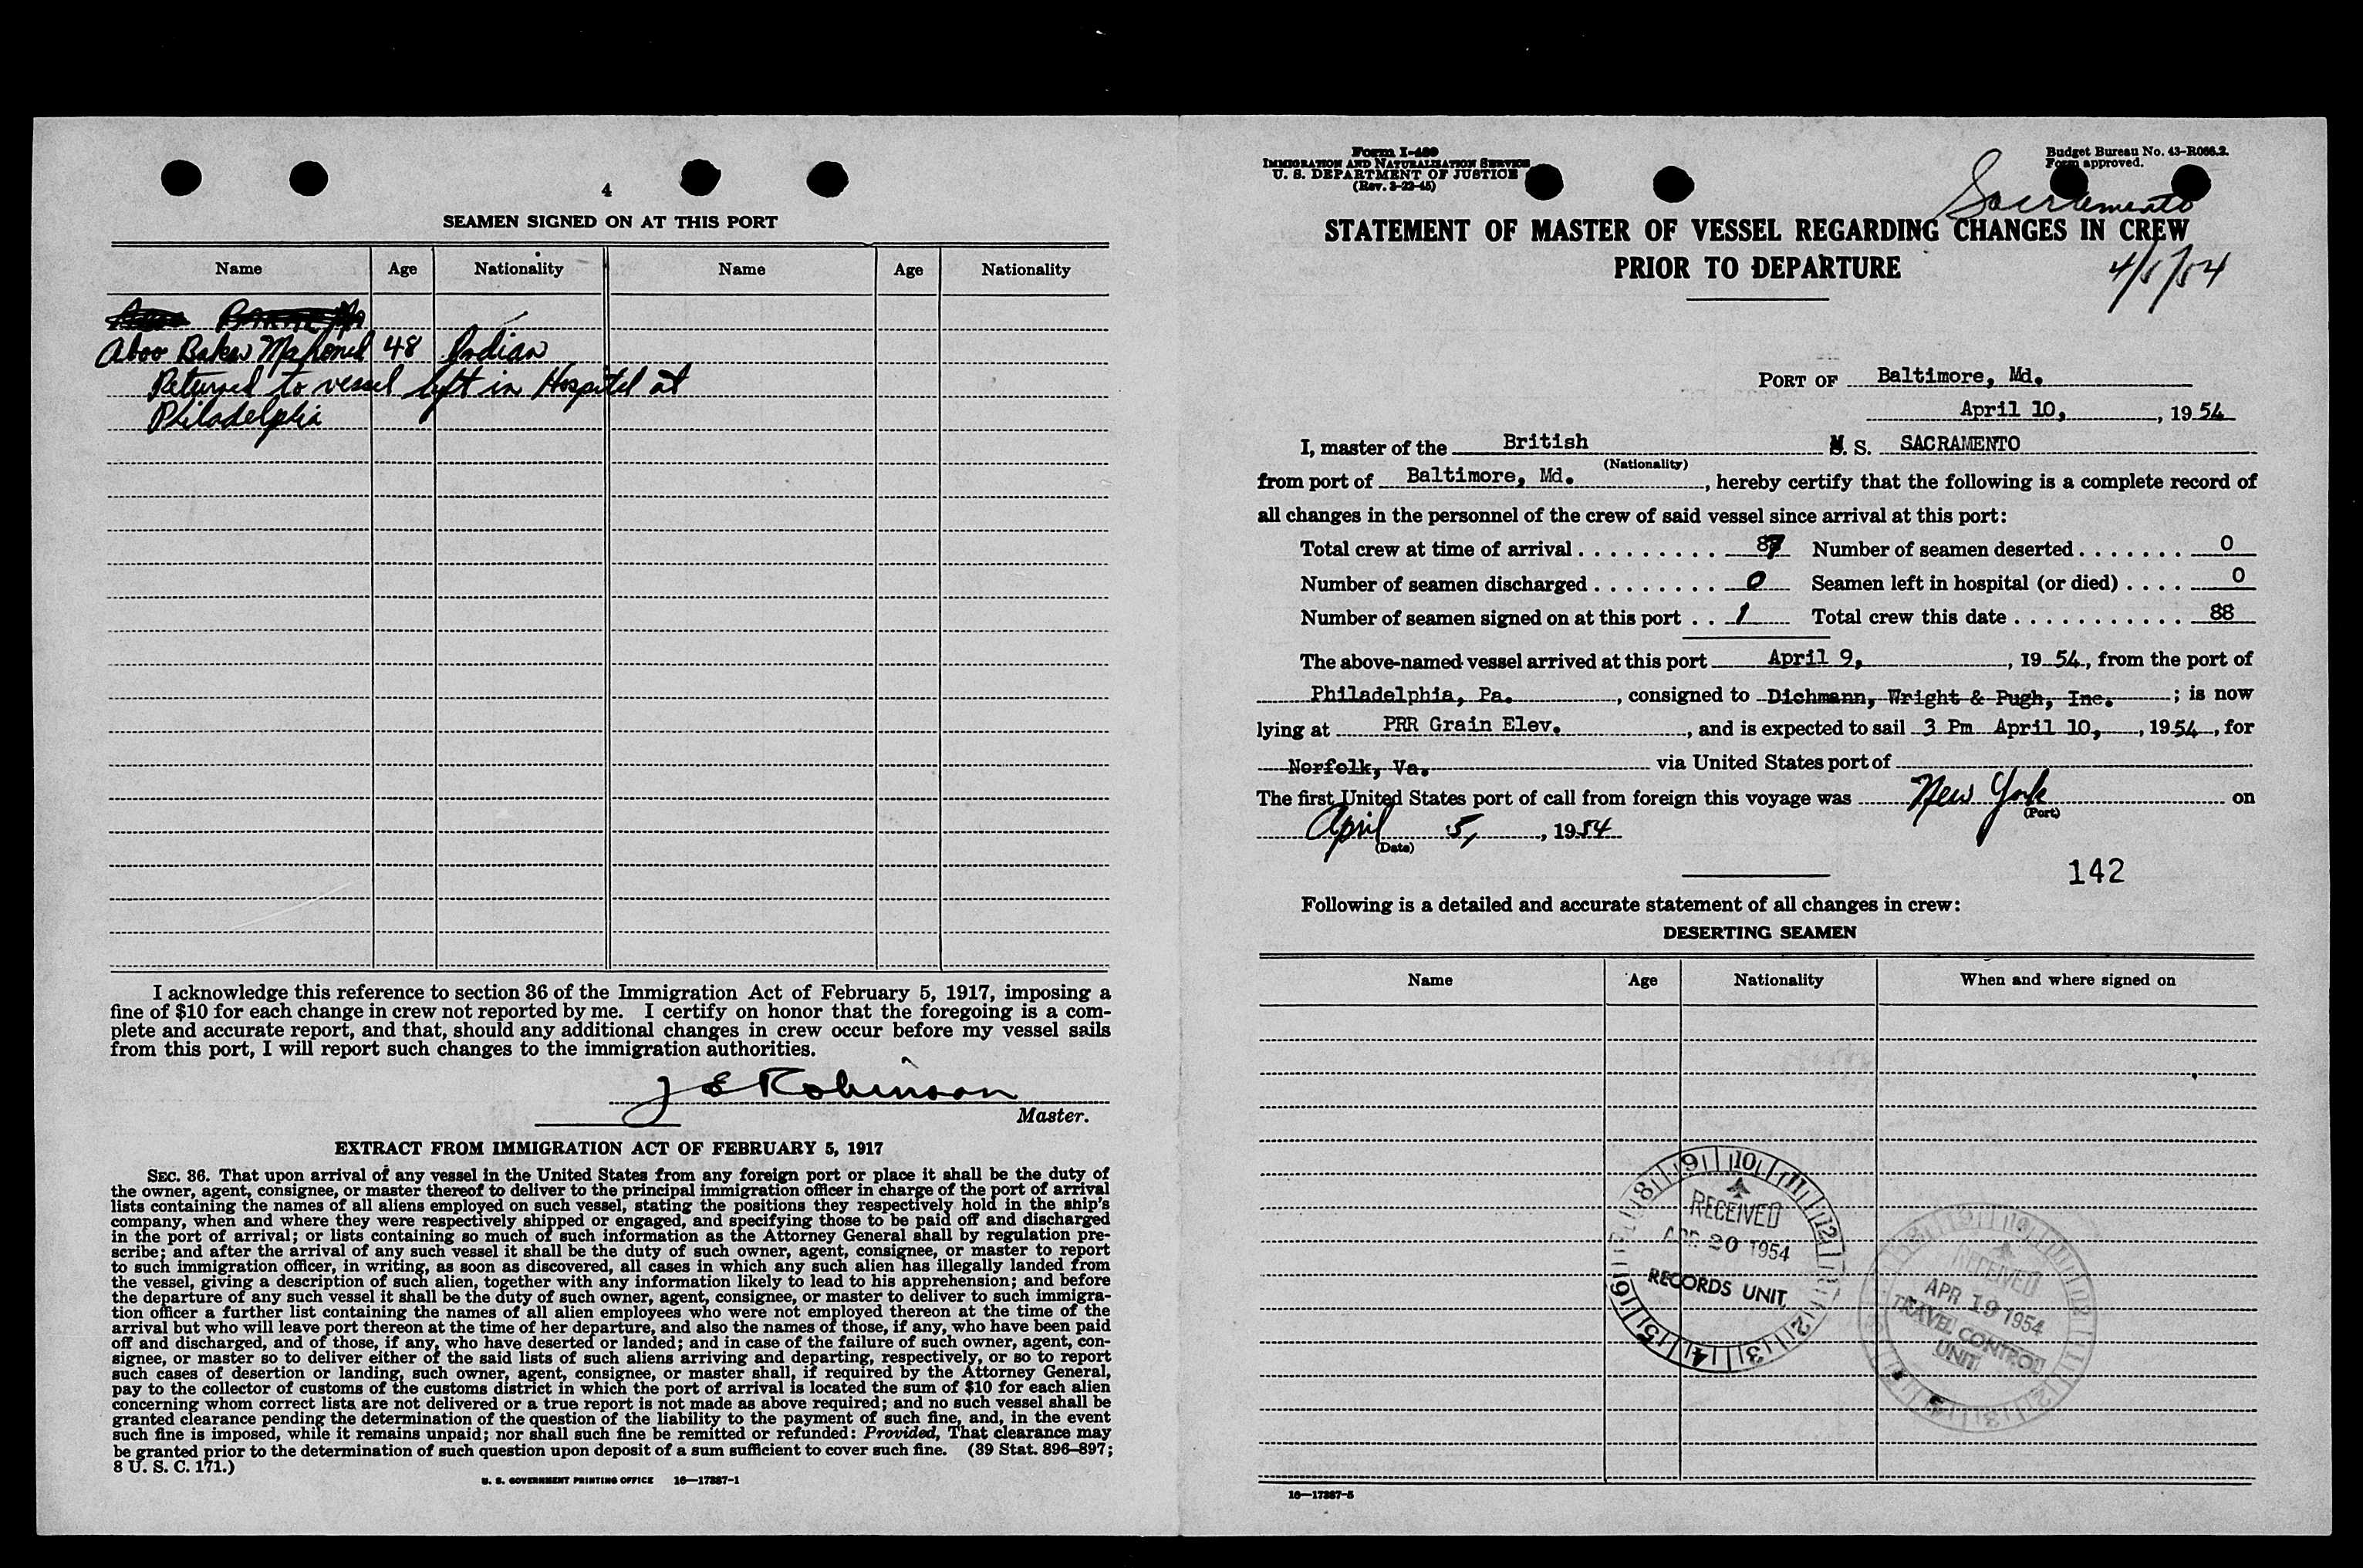 4
SEAMEN SIGNED ON AT THIS PORT
Name Age Nationality Name Age Nationality
Aboo Baker Mahomed 48 Indian
Returned to vessel left in Hospital at
Philadelphia
I acknowledge this reference to section 36 of the Immigration Act of February 5, 1917, imposing a
fine of $10 for each change in crew not reported by me. I certify on honor that the foregoing is a com-
plete and accurate report, and that, should any additional changes in crew occur before my vessel sails
from this port, I will report such changes to the immigration authorities.
J E Robinson
Master.
EXTRACT FROM IMMIGRATION ACT OF FEBRUARY 5, 1917
SEC. 36. That upon arrival of any vessel in the United States from any foreign port or place it shall be the duty of
the owner, agent, consignee, or master thereof to deliver to the principal immigration officer in charge of the port of arrival
lists containing the names of all aliens employed on such vessel, stating the positions they respectively hold in the ship's
company, when and where they were respectively shipped or engaged, and specifying those to be paid off and discharged
in the port of arrival; or lists containing so much of such information as the Attorney General shall by regulation pre-
scribe; and after the arrival of any such vessel it shall be the duty of such owner, agent, consignee, or master to report
to such immigration officer, in writing, as soon as discovered, all cases in which any such alien has illegally landed from
the vessel, giving a description of such alien, together with any information likely to lead to his apprehension; and before
the departure of any such vessel it shall be the duty of such owner, agent, consignee, or master to deliver to such immigra-
tion officer a further list containing the names of all alien employees who were not employed thereon at the time of the
arrival but who will leave port thereon at the time of her departure, and also the names of those, if any, who have been paid
off and discharged, and of those, if any, who have deserted or landed; and in case of the failure of such owner, agent, con-
signee, or master so to deliver either of the said lists of such aliens arriving and departing, respectively, or so to report
such cases of desertion or landing, such owner, agent, consignee, or master shall, if required by the Attorney General,
pay to the collector of customs of the customs district in which the port of arrival is located the sum of $10 for each alien
concerning whom correct lists are not delivered or a true report is not made as above required; and no such vessel shall be
granted clearance pending the determination of the question of the liability to the payment of such fine, and, in the event
such fine is imposed, while it remains unpaid; nor shall such fine be remitted or refunded: Provided, That clearance may
be granted prior to the determination of such question upon deposit of a sum sufficient to cover such fine. (39 Stat. 896–897;
8 U. S. C. 171.)
U. S. GOVERNMENT PRINTING OFFICE 16—17887-1
Form I-489
IMMIGRATION AND NATURALIZATION SERVICE
U. S. DEPARTMENT OF JUSTICE
(Rev. 3-22-45)
Budget Bureau No. 43-R066.2.
Form approved.
Sacramento
STATEMENT OF MASTER OF VESSEL REGARDING CHANGES IN CREW
PRIOR TO DEPARTURE
4/5/54
PORT OF Baltimore, Md.
April 10, , 1954
I, master of the British M. S. SACRAMENTO
(Nationality)
from port of Baltimore, Md. , hereby certify that the following is a complete record of
all changes in the personnel of the crew of said vessel since arrival at this port:
Total crew at time of arrival . . . . . . . . . . 87 Number of seamen deserted . . . . . . . 0
Number of seamen discharged . . . . . . . . 0 Seamen left in hospital (or died) . . . . 0
Number of seamen signed on at this port . . 1 Total crew this date . . . . . . . . . . . 88
The above-named vessel arrived at this port April 9, , 1954, from the port of
Philadelphia, Pa. , consigned to Dichmann, Wright & Pugh, Inc. ; is now
lying at PRR Grain Elev. , and is expected to sail 3 Pm April 10, , 1954, for
Norfolk, Va. via United States port of
The first United States port of call from foreign this voyage was New York on
(Port)
April 5, , 1954
(Date)
142
Following is a detailed and accurate statement of all changes in crew:
DESERTING SEAMEN
Name Age Nationality When and where signed on
RECEIVED
APR 20 1954
RECORDS UNIT
RECEIVED
APR 19 1954
TRAVEL CONTROL
UNIT
16—17887-5